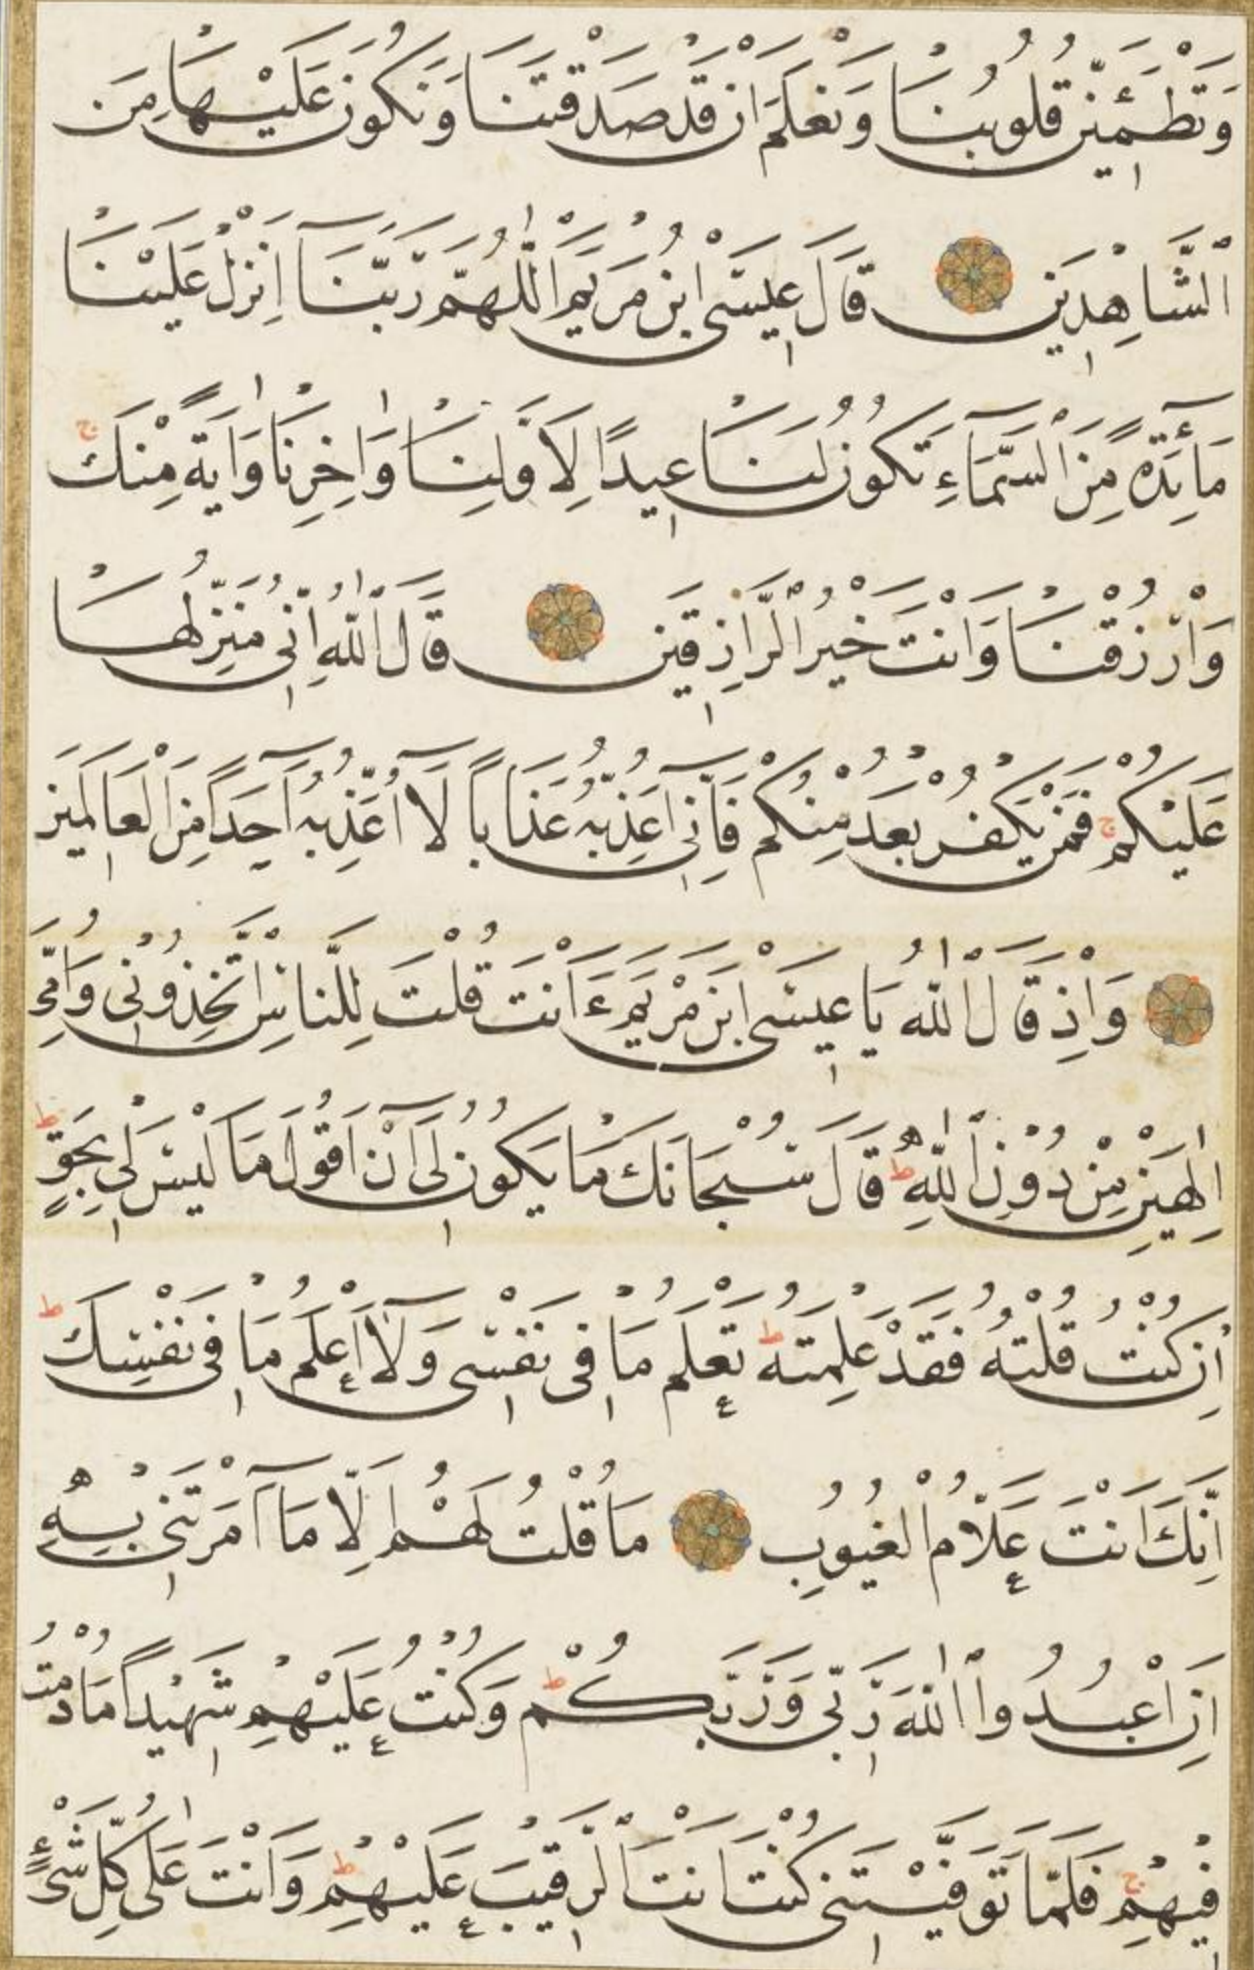 وَتَطْمَئِنَّ قُلُوبُنَا وَنَعْلَمَ اَنْ قَدْ صَدَقْتَنَا وَنَكُونَ عَلَيْهَا مِنَ
الْشَّاهِدِينَ قَالَ عِيسَى ابْنُ مَرْيَمَ اللّٰهُمَّ رَبَّنَا اَنْزِلْ عَلَيْنَا
مَآئِدَةً مِنَ السَّمَآءِ تَكُونُ لَنَا عِيدًا لِاَوَّلِنَا وَاٰخِرِنَا وَاٰيَةً مِنْكَ ج
وَارْزُقْنَا وَاَنْتَ خَيْرُ الرَّازِقِينَ قَالَ اللّٰهُ اِنِّي مُنَزِّلُهَا
عَلَيْكُمْ ج فَمَنْ يَكْفُرْ بَعْدُ مِنْكُمْ فَاِنِّٓي اُعَذِّبُهُ عَذَابًا لَٓا اُعَذِّبُهُٓ اَحَدًا مِنَ الْعَالَمِينَ
وَاِذْ قَالَ اللّٰهُ يَا عِيسَى ابْنَ مَرْيَمَ ءَاَنْتَ قُلْتَ لِلنَّاسِ اتَّخِذُونِي وَاُمِّيَ
اِلٰهَيْنِ مِنْ دُونِ اللّٰهِ ط قَالَ سُبْحَانَكَ مَا يَكُونُ لِٓي اَنْ اَقُولَ مَا لَيْسَ لِي بِحَقٍّ ط
اِنْ كُنْتُ قُلْتُهُ فَقَدْ عَلِمْتَهُ ط تَعْلَمُ مَا فِي نَفْسِي وَلَٓا اَعْلَمُ مَا فِي نَفْسِكَ ط
اِنَّكَ اَنْتَ عَلَّامُ الْغُيُوبِ مَا قُلْتُ لَهُمْ اِلَّا مَٓا اَمَرْتَنِي بِهِٓ
اَنِ اعْبُدُوا اللّٰهَ رَبِّي وَرَبَّكُمْ ط وَكُنْتُ عَلَيْهِمْ شَهِيدًا مَا دُمْتُ
فِيهِمْ ج فَلَمَّا تَوَفَّيْتَنِي كُنْتَ اَنْتَ الرَّقِيبَ عَلَيْهِمْ ط وَاَنْتَ عَلٰى كُلِّ شَيْءٍ